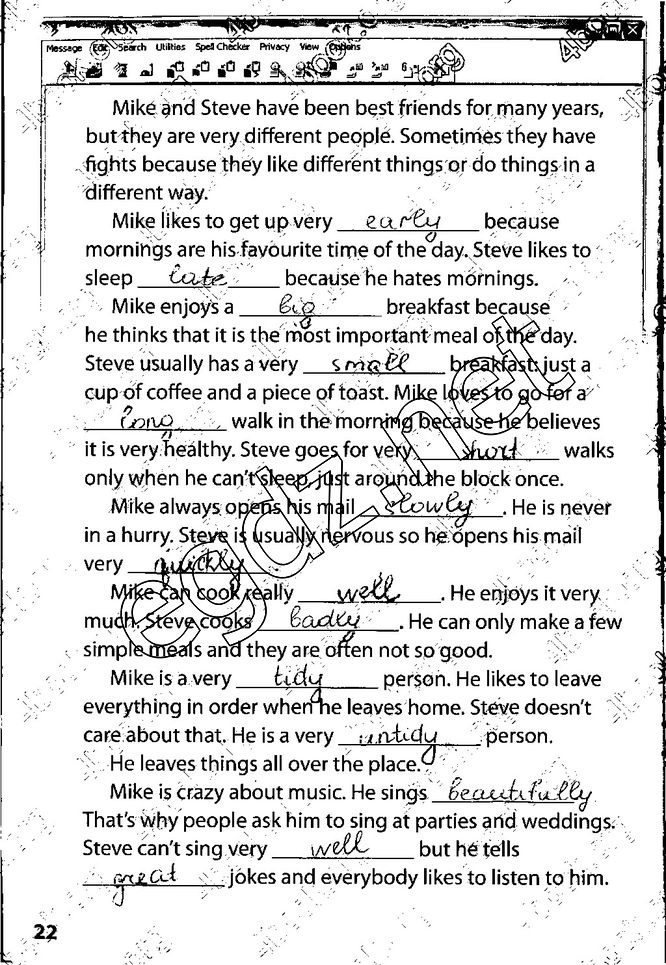 Message Edit Search Utilities Spell Checker Privacy View Options
Mike and Steve have been best friends for many years,
but they are very different people. Sometimes they have
fights because they like different things or do things in a
different way.
Mike likes to get up very early because
mornings are his favourite time of the day. Steve likes to
sleep late because he hates mornings.
Mike enjoys a big breakfast because
he thinks that it is the most important meal of the day.
Steve usually has a very small breakfast: just a
cup of coffee and a piece of toast. Mike loves to go for a
long walk in the morning because he believes
it is very healthy. Steve goes for very short walks
only when he can't sleep, just around the block once.
Mike always opens his mail slowly. He is never
in a hurry. Steve is usually nervous so he opens his mail
very quickly
Mike can cook really well. He enjoys it very
much. Steve cooks badly. He can only make a few
simple meals and they are often not so good.
Mike is a very tidy person. He likes to leave
everything in order when he leaves home. Steve doesn't
care about that. He is a very untidy person.
He leaves things all over the place.
Mike is crazy about music. He sings beautifully
That's why people ask him to sing at parties and weddings.
Steve can't sing very well but he tells
great jokes and everybody likes to listen to him.
22
egdz.net